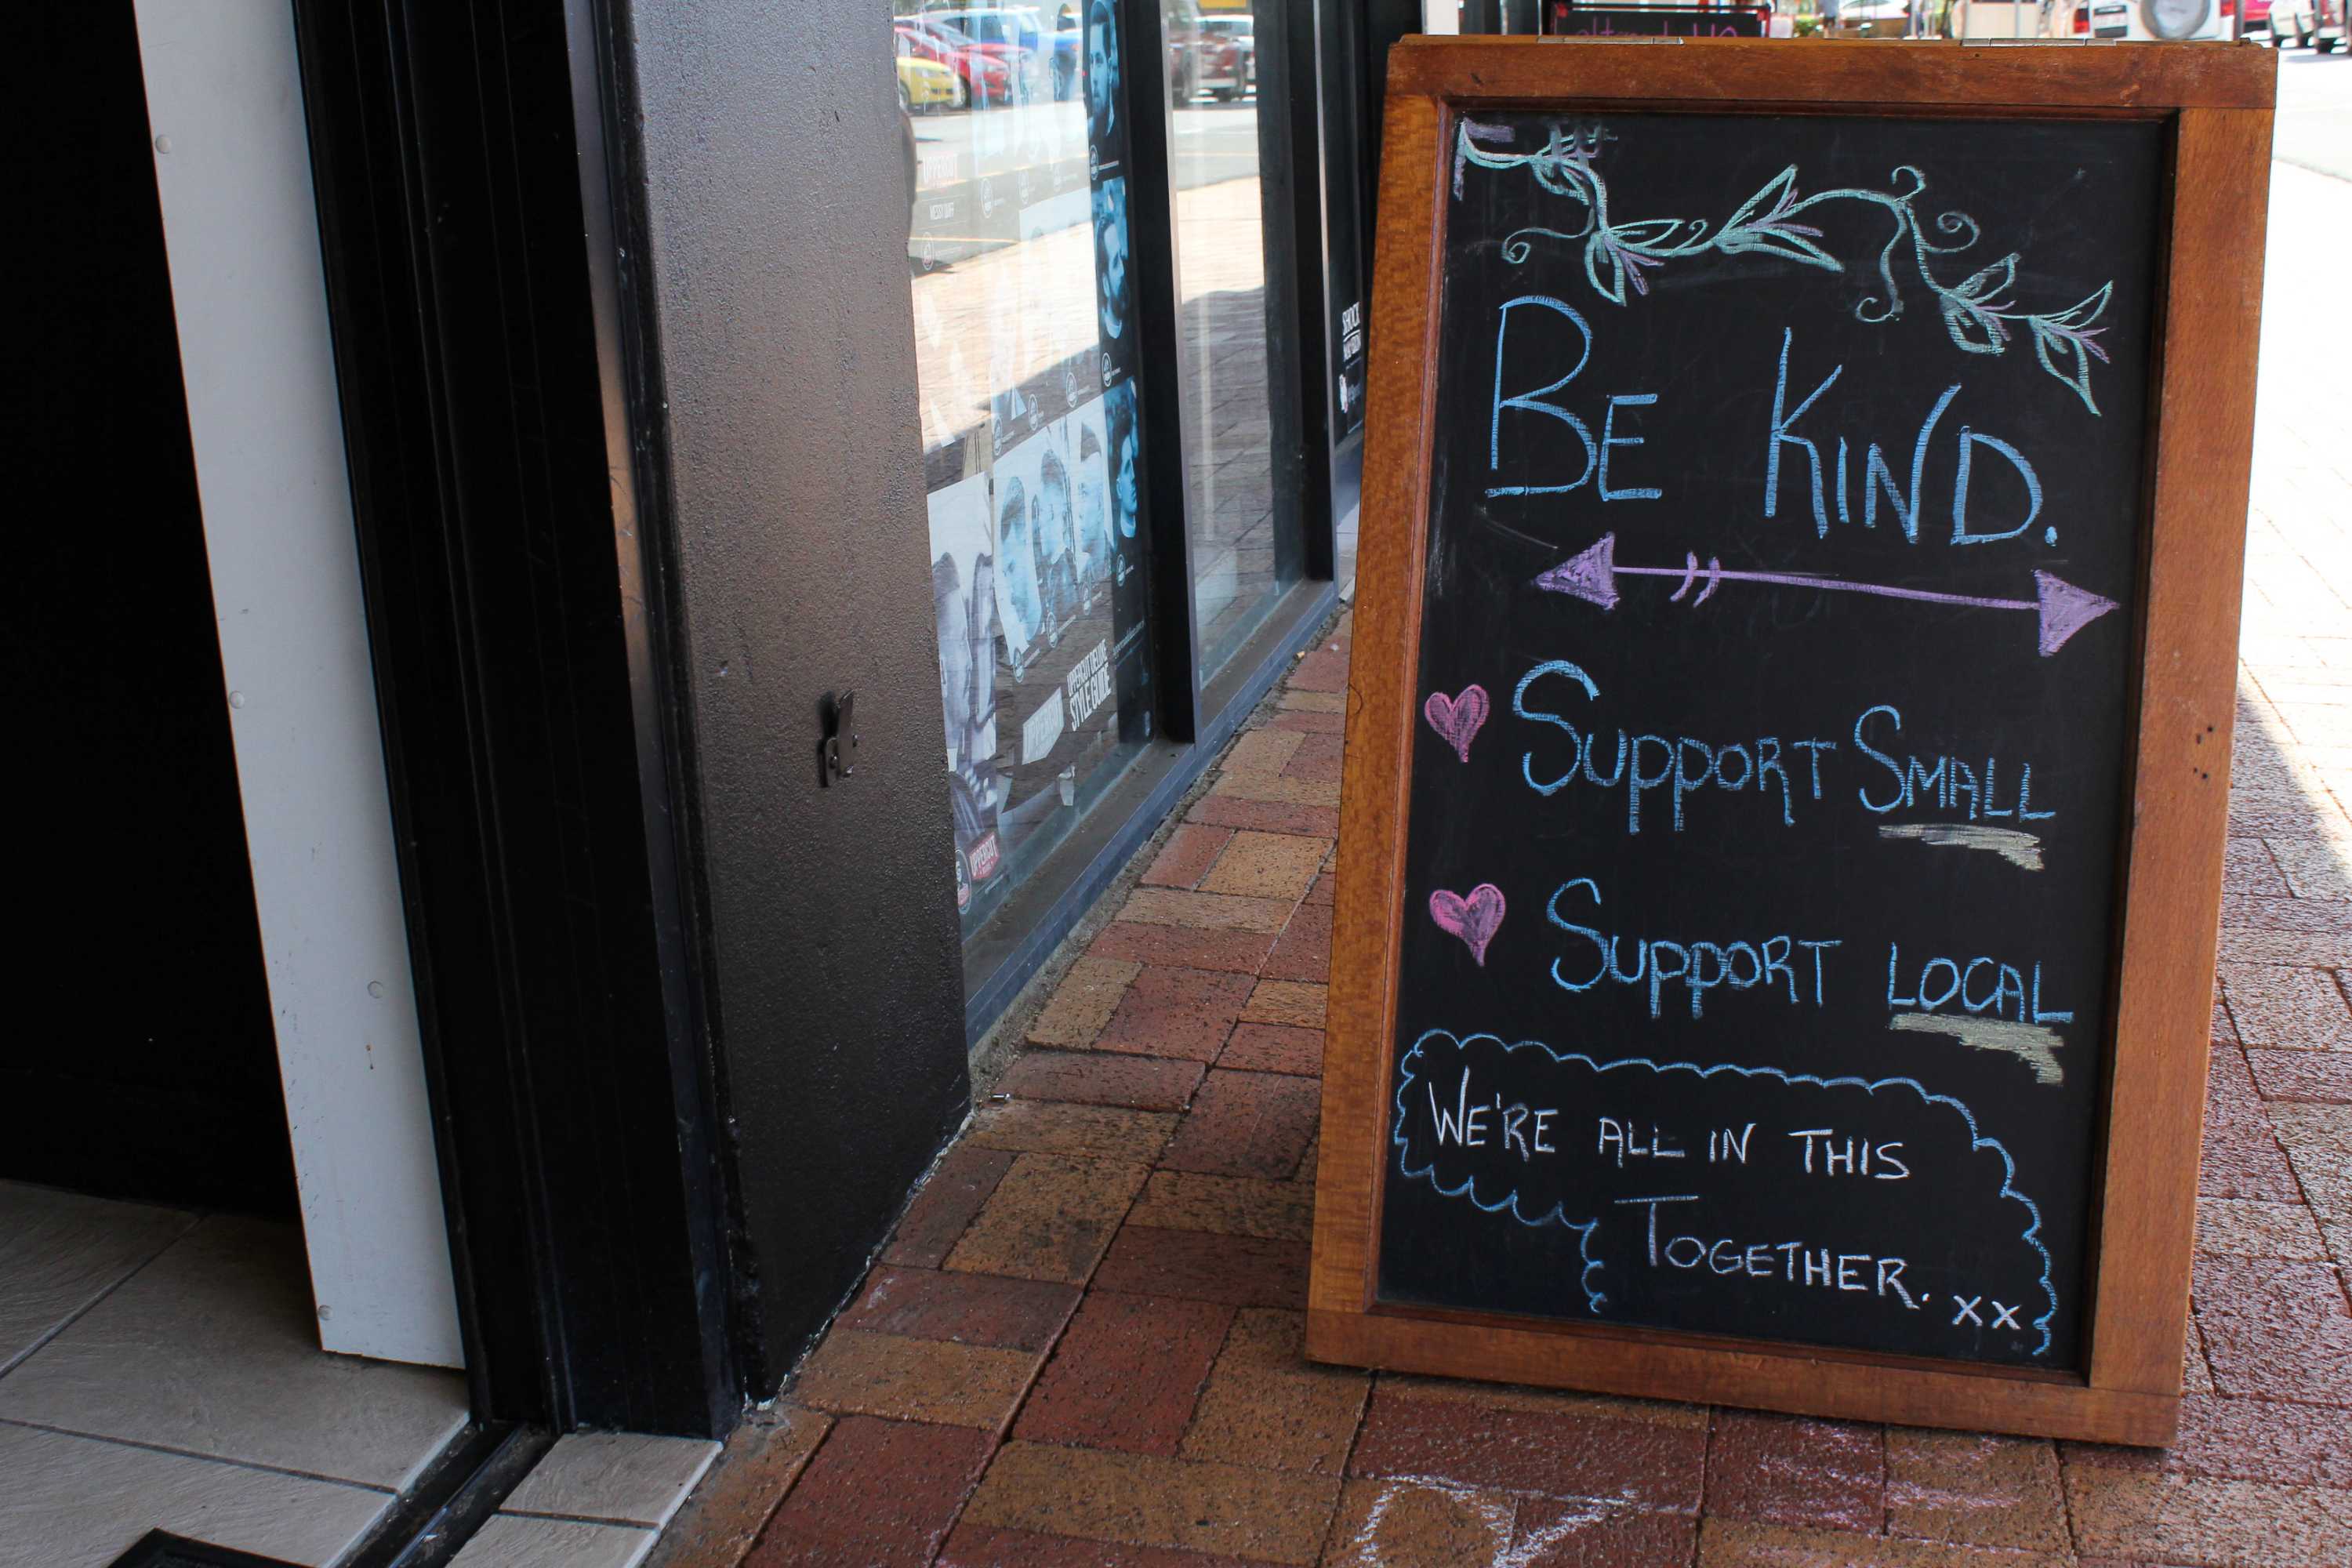 BE KIND.
SUPPORT SMALL
SUPPORT LOCAL
WE'RE ALL IN THIS
TOGETHER. xx
UPPERCUT DELUXE
STYLE GUIDE
UPPERCUT